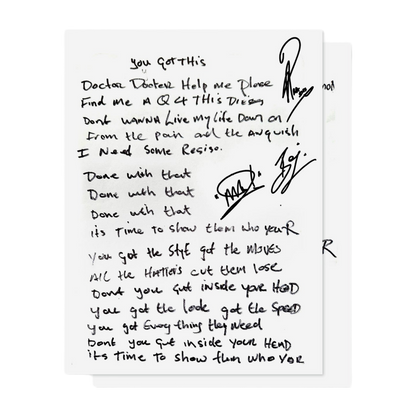 you Got THis
Doctor Docter Help me Please
Find me A Q 4 THis Disies
Dont WANNA Live My Life Down on
From the pain and the Anguish
I Need Some Regiso.
Done with that
Done with that
Done with that
its Time to show them who youR
You got the Style got the Moves
All the Hatters cut them lose
Dont you Get inside your HEAD
you got the look got the Speed
you got Everything they Need
Dont you Get inside your HEAD
its Time to show them who YoR
R